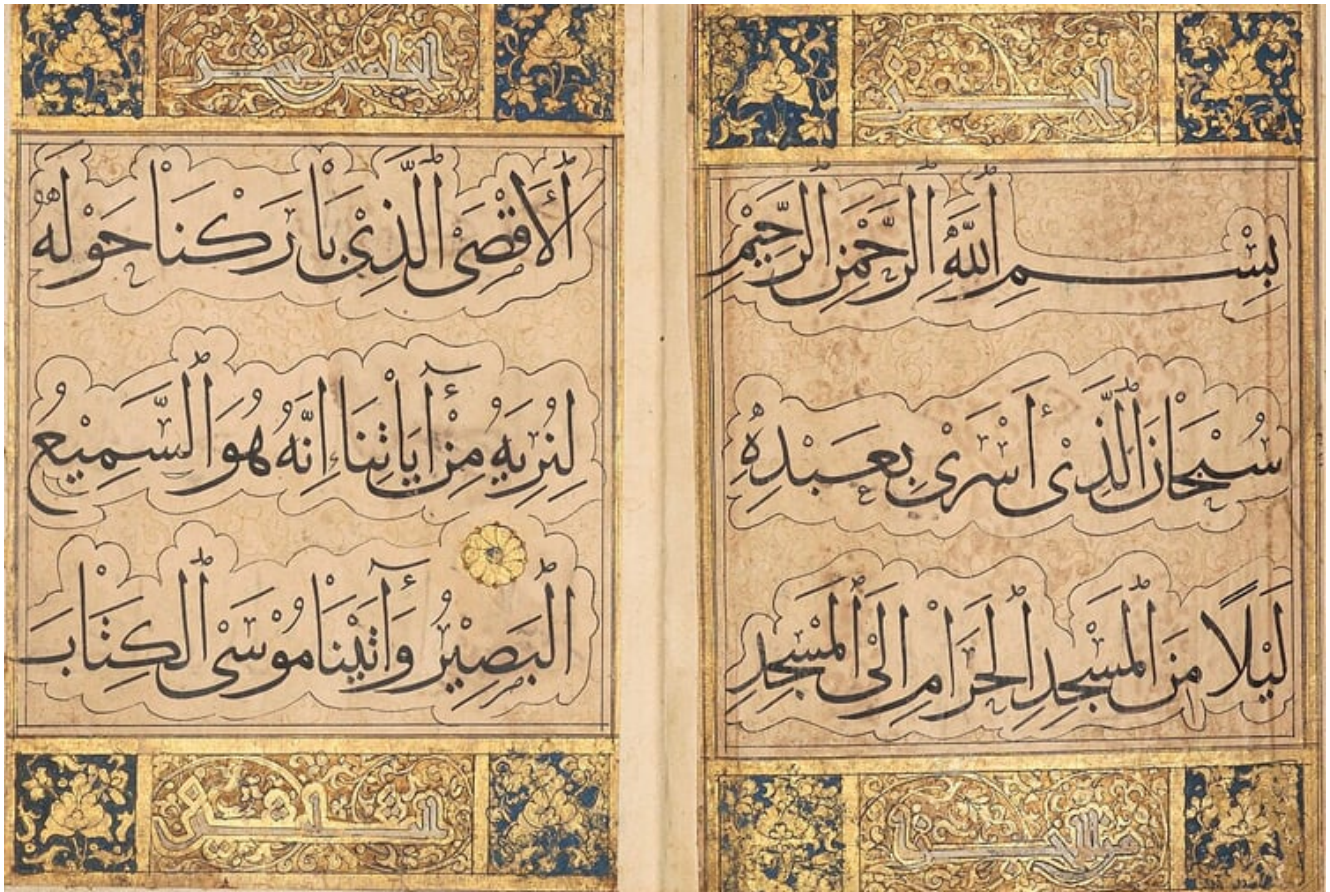 الجزء
بِسْمِ اللَّهِ الرَّحْمٰنِ الرَّحِيْمِ
سُبْحَانَ الَّذِىْ أَسْرَىٰ بِعَبْدِهٖ
لَيْلًا مِنَ الْمَسْجِدِ الْحَرَامِ اِلَى الْمَسْجِدِ
الخامس عشر
الْأَقْصَى الَّذِىْ بَارَكْنَا حَوْلَهُ
لِنُرِيَهُ مِنْ آيَاتِنَا اِنَّهُ هُوَ السَّمِيْعُ
الْبَصِيْرُ وَآتَيْنَا مُوْسَى الْكِتَابَ